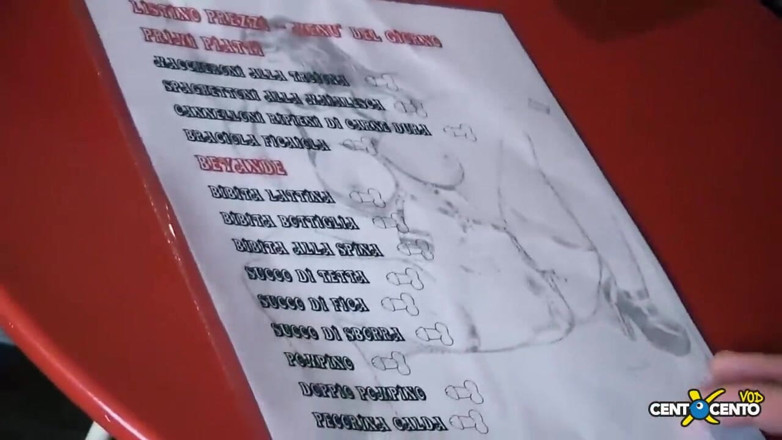 LISTINO PREZZI - MENU' DEL GIORNO
PRIMI PIATTI
MACCHERONI ALLA TROIONA
SPAGHETTONI ALLA MAIALESCA
CANNELLONI RIPIENI DI CARNE DURA
BRACIOLA FICAIOLA
BEVANDE
BIBITA LATTINA
BIBITA BOTTIGLIA
BIBITA ALLA SPINA
SUCCO DI TETTA
SUCCO DI FICA
SUCCO DI SBORRA
POMPINO
DOPPIO POMPINO
PECORINA CALDA
CENTOXCENTO VOD